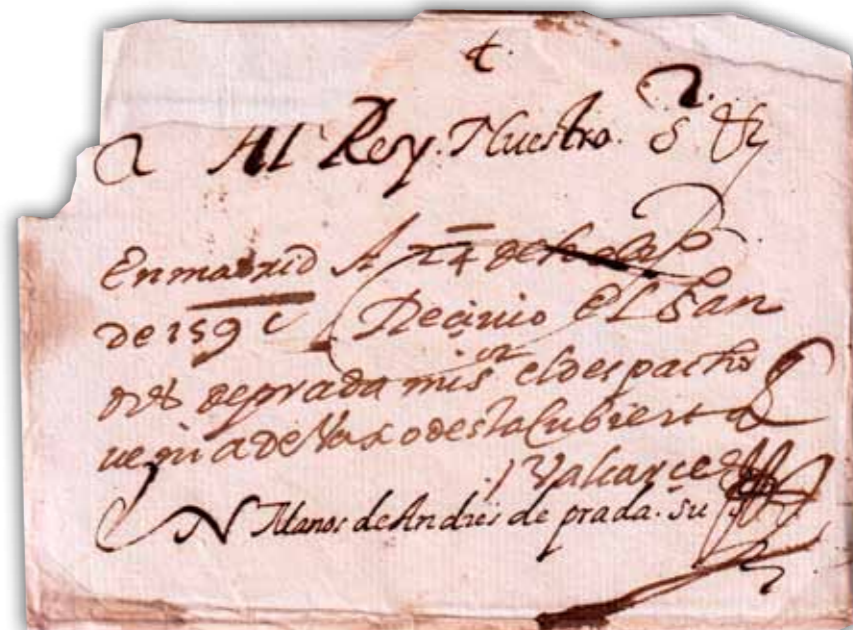 Al Rey Nuestro S.
En madrid A 24 de
de 159 Recivio El S. an
dres de prada mi s.or el despacho
venia debaxo desta Cubierta
Valcarçel
En Manos de Andres de prada su